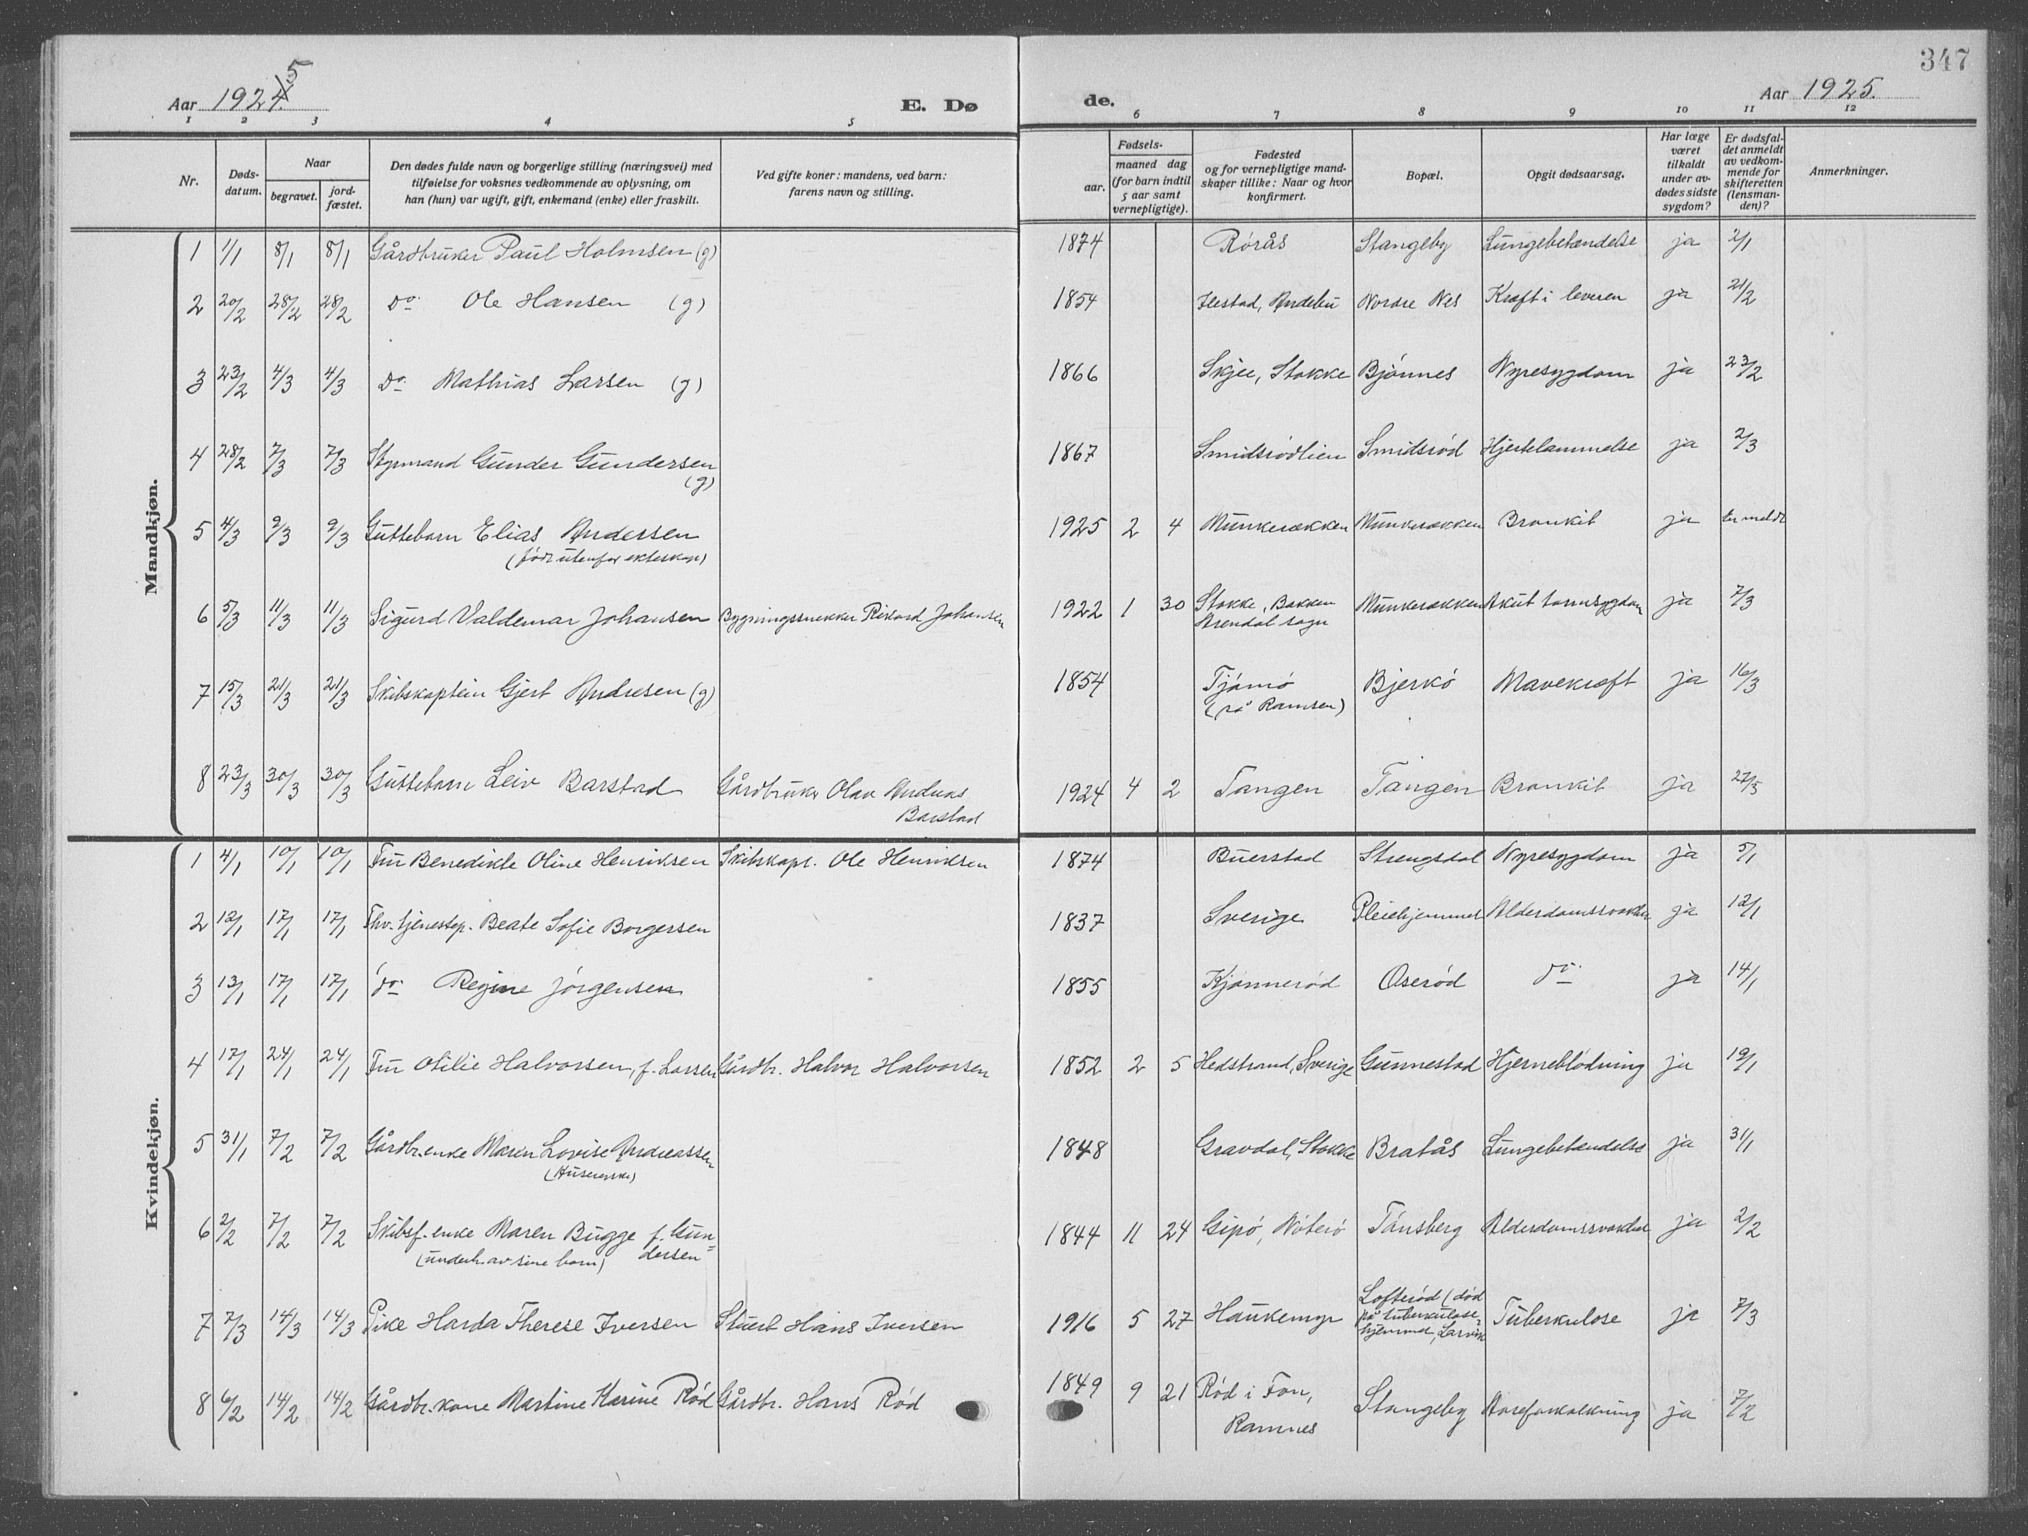 347
Aar 1925
E. Dø
de.
Aar 1925.
1 2 3 4 5 6 7 8 9 10 11 12
Nr.
Døds-
datum.
Naar
begravet.
jord-
fæstet.
Den dødes fulde navn og borgerlige stilling (næringsvei) med
tilføielse for voksnes vedkommende av oplysning, om
han (hun) var ugift, gift, enkemand (enke) eller fraskilt.
Ved gifte koner: mandens, ved barn:
farens navn og stilling.
Fødsels-
aar.
maaned dag
(for barn indtil
5 aar samt
vernepligtige).
Fødested
og for vernepligtige mand-
skaper tillike: Naar og hvor
konfirmert.
Bopæl.
Opgit dødsaarsag.
Har læge
været
tilkaldt
under av-
dødes sidste
sygdom?
Er dødsfal-
det anmeldt
av vedkom-
mende for
skifteretten
(lensman-
den)?
Anmerkninger.
Mandkjøn.
1 1/1 8/1 8/1 Gårdbruker Paul Holmsen (g) 1874 Rørås Stangeby Lungebetændelse ja 2/1
2 20/2 28/2 28/2 Do Ole Hansen (g) 1854 Ilestad, Andebu Nordre Nes Kræft i leveren ja 21/2
3 23/2 4/3 4/3 Do Mathias Larsen (g) 1866 Skjee, Stokke Bjønnes Nyresygdom ja 23/2
4 28/2 7/3 7/3 Styrmand Gunder Gundersen
(g) 1867 Smidsrødlien Smidsrød Hjertelammelse ja 2/3
5 4/3 9/3 9/3 Guttebarn Elias Andersen
(født utenfor ekteskap) 1925 2 4 Munkerækken Munkerækken Bronkit ja Er meldt
6 5/3 11/3 11/3 Sigurd Valdemar Johansen Bygningssnekker Rikard Johansen 1922 1 30 Stokke, Bakken
Arendal sogn Munkerækken Akut tarmsygdom ja 7/3
7 15/3 21/3 21/3 Skibskaptein Gjert Andresen (g) 1854 Tjømø
(på Ramsen) Bjerkø Mavekræft ja 16/3
8 23/3 30/3 30/3 Guttebarn Leiv Barstad Gårdbruker Olav Andreas
Barstad 1924 4 2 Tangen Tangen Bronkit ja
Kvindekjøn.
1 4/1 10/1 10/1 Fru Benedikte Oline Henriksen Skibskapt. Ole Henriksen 1874 Buerstad Strengsdal Nyresygdom ja 5/1
2 12/1 17/1 17/1 Fhv. tjenestep. Beate Sofie Borgersen 1837 Sverige Pleiehjemmet Alderdomssvakhet ja 12/1
3 13/1 17/1 17/1 do Regine Jørgensen 1855 Kjønnerød Oserød do ja 14/1
4 17/1 24/1 24/1 Fru Otilie Halvorsen, f. Larsen Gårdbr. Halvor Halvorsen 1852 2 5 Hedstrand, Sverige Gunnestad Hjerneblødning ja 19/1
5 31/1 7/2 7/2 Gårdbr.enke Maren Lovise Andreassen
1848 Gravdal, Stokke Bratås Lungebetændelse ja 31/1
6 2/2 7/2 7/2 Skibsf.enke Maren Bugge f. Gun=
(underh. av sine barn) dersen 1844 11 24 Gipø, Nøterø Tønsberg Alderdomssvakhet ja 2/2
7 7/3 14/3 14/3 Pike Harda Therese Iversen Stuert Hans Iversen 1916 5 27 Haukemyr Lofterød (død
på tuberkulose-
hjemmet, Larvik Tuberkulose ja 7/3
8 6/2 14/2 14/2 Gårdbr.kone Martine Karine Rød Gårdbr. Hans Rød 1849 9 21 Rød i Fon,
Ramnes Stangeby Aareforkalkning ja 7/2